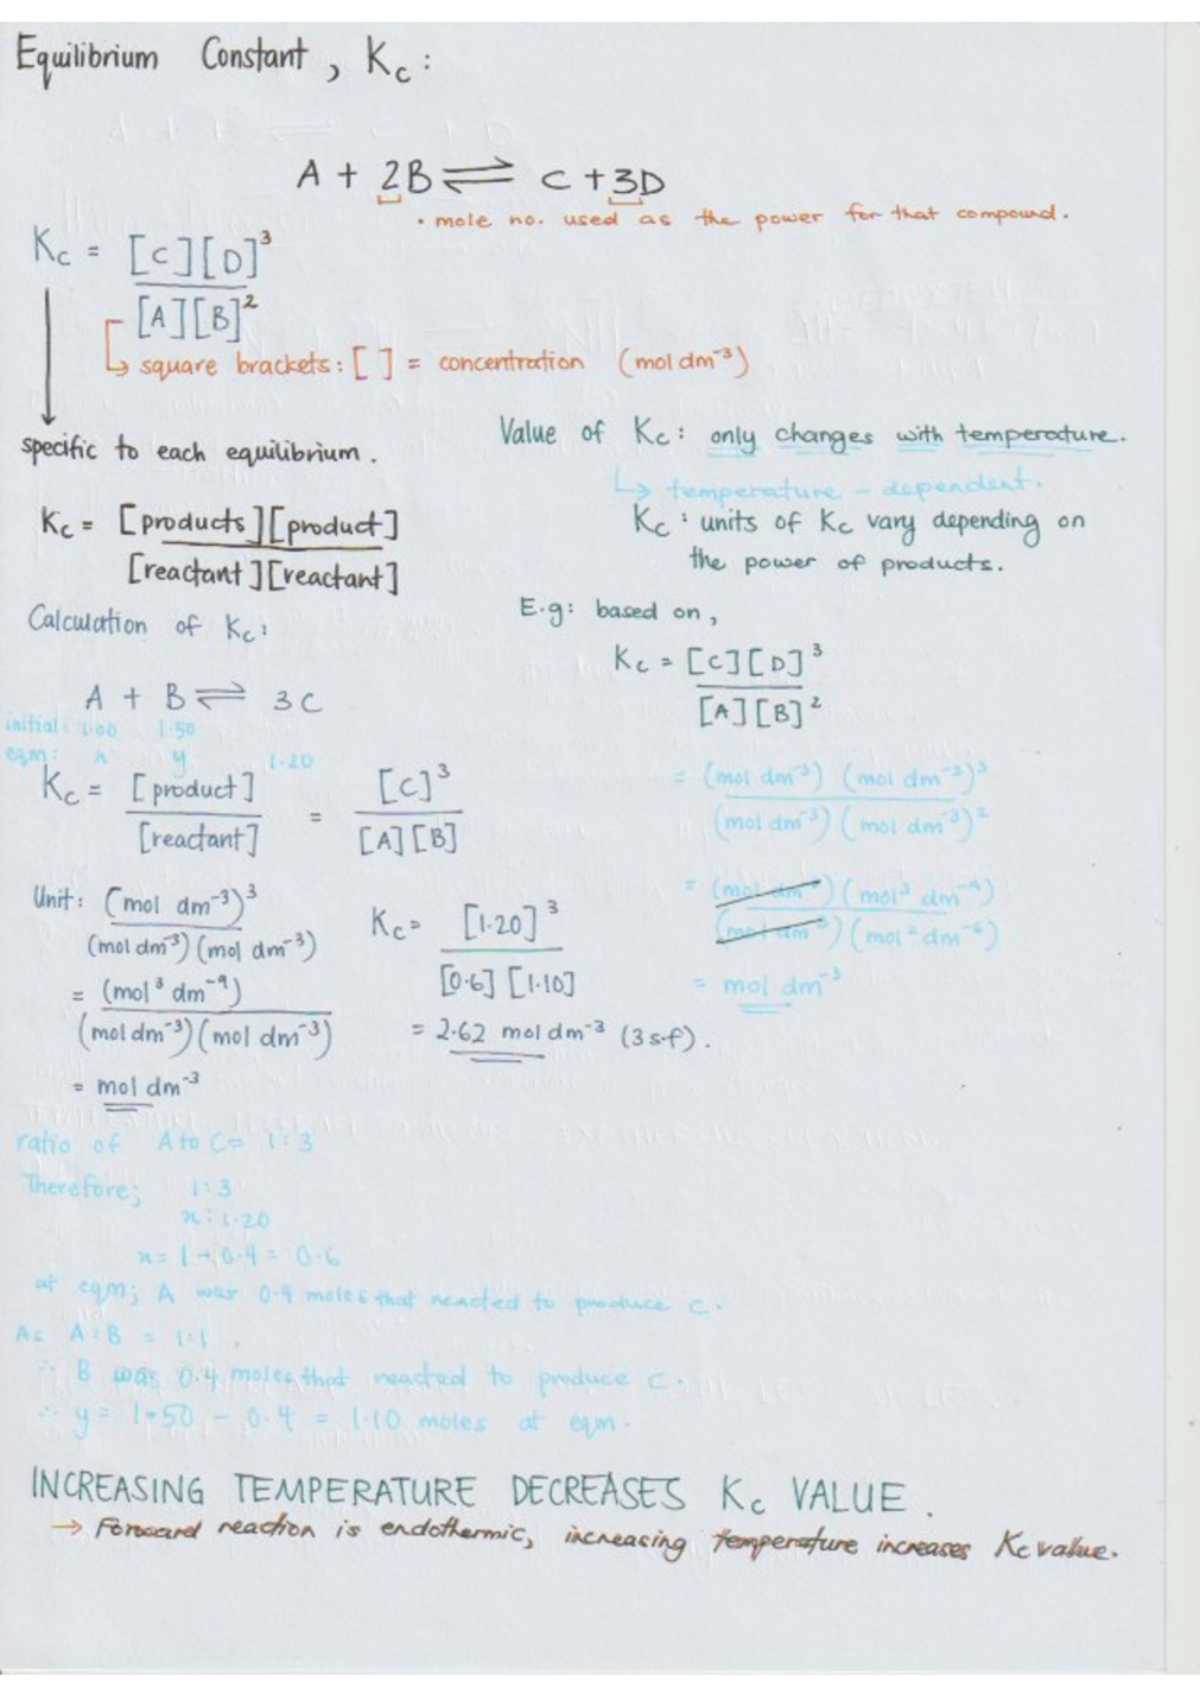 Equilibrium Constant, Kc:
A + 2B ⇌ C + 3D
• mole no. used as the power for that compound.
Kc = [C][D]³
[A][B]²
↳ square brackets: [ ] = concentration (mol dm⁻³)
specific to each equilibrium.
Kc = [products][product]
[reactant][reactant]
Value of Kc: only changes with temperature.
↳ temperature - dependent.
Kc: units of Kc vary depending on
the power of products.
E.g: based on,
Kc = [C][D]³
[A][B]²
= (mol dm⁻³) (mol dm⁻³)³
(mol dm⁻³) (mol dm⁻³)²
= (mol dm⁻³)(mol³ dm⁻⁹)
(mol dm⁻³)(mol² dm⁻⁶)
= mol dm⁻³
Calculation of Kc:
A + B ⇌ 3C
initial: 1.00 1.50
eqm: x y 1.20
Kc = [product] = [C]³
[reactant] [A][B]
Unit: (mol dm⁻³)³
(mol dm⁻³)(mol dm⁻³)
= (mol³ dm⁻⁹)
(mol dm⁻³)(mol dm⁻³)
= mol dm⁻³
Kc = [1.20]³
[0.6][1.10]
= 2.62 mol dm⁻³ (3 s.f).
ratio of A to C = 1:3
Therefore; 1:3
x:1.20
x = 1 - 0.4 = 0.6
at eqm; A was 0.4 moles that reacted to produce C.
As A:B = 1:1.
∴ B was 0.4 moles that reacted to produce C.
∴ y = 1.50 - 0.4 = 1.10 moles at eqm.
INCREASING TEMPERATURE DECREASES Kc VALUE.
→ Forward reaction is endothermic, increasing temperature increases Kc value.